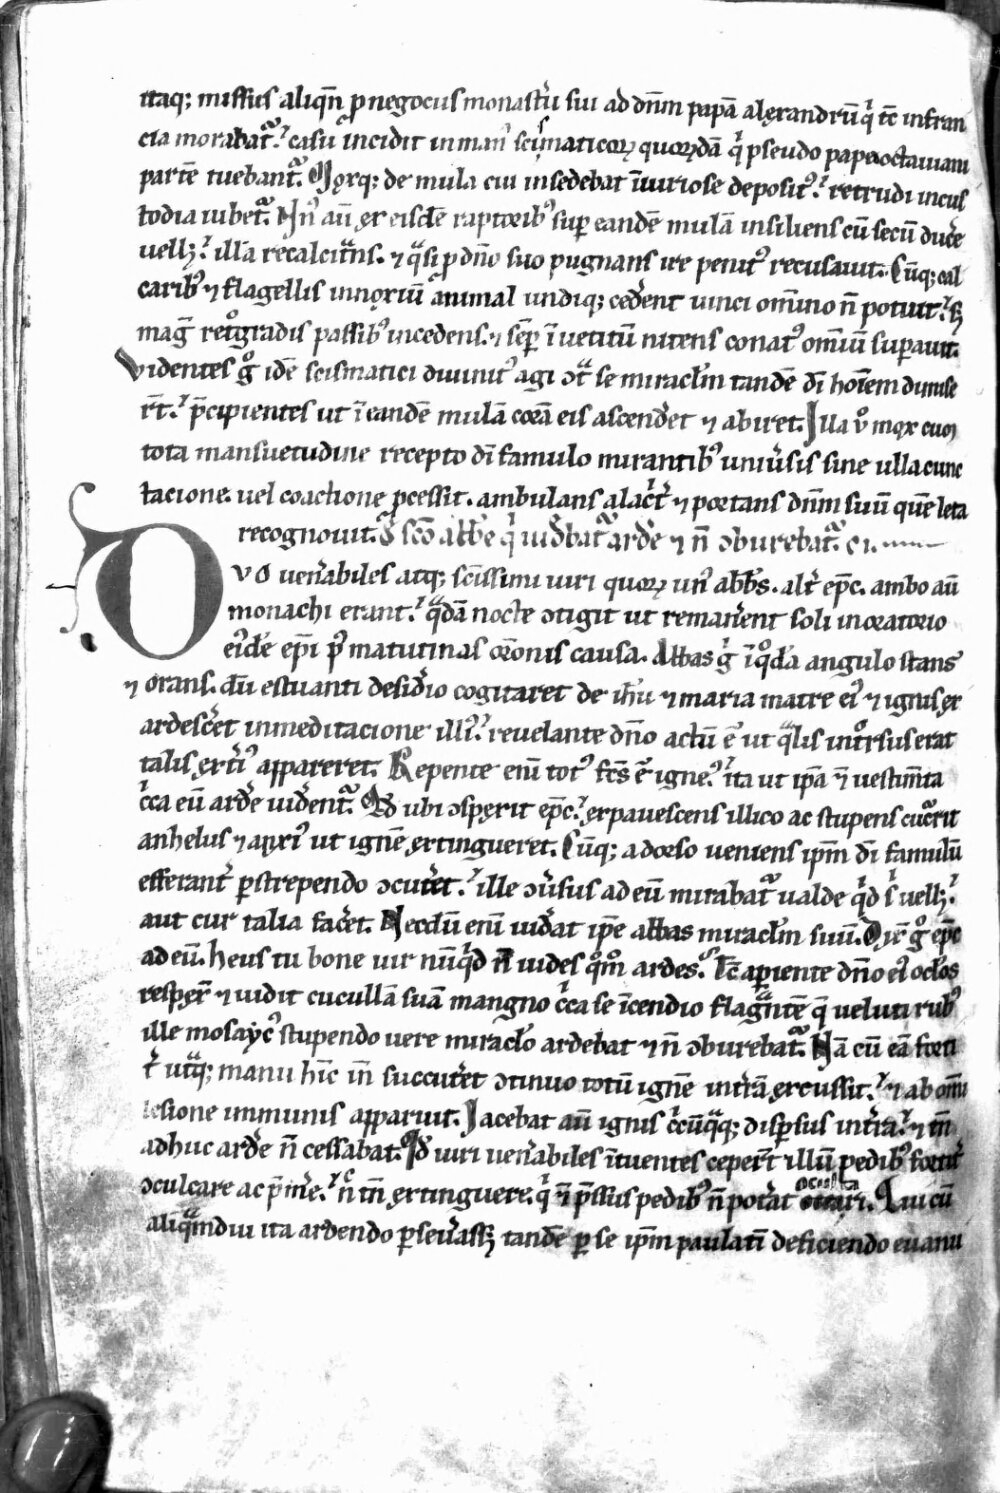 itaq; missus aliqn̄ ꝓ negocus monast̄ii sui ad dn̄m papā alexandrū qͥ tc̄ infran
cia morabat᷑. casu incidit in manꝰ scismaticoꝝ quoꝝdā qͥ pseudo pape octauiani
partē tuebant᷑. Moxq; de mula cui insedebat īiuriose depositꝰ. retrudi incus
todia iubet᷑. Vnꝰ aū ex eisdē raptoribꝰ suꝑ eandē mulā insiliens cū secū ducͤe
vellꝫ. illa recalcitͣns. ⁊ qͣsi ꝓ dn̄o suo pugnans ire penitꝰ recusauit. Cūq; cal
caribꝰ ⁊ flagellis innoxiū animal undiq; cedeͤnt uinci om̄ino n̄ potuit. sꝫ
maḡ retͦgradis passibꝰ incedens. ⁊ semꝑ ī uetitū nitens conatꝰ om̄iū suꝑauit.
Videntes gͦ idē scismatici diuinitꝰ agi ↄtͣ se miracl̄m tandē dī hoīem dimise
rt̄. p̄cipientes ut ī eandē mulā corā eis ascendeͤt ⁊ abiret. Illa uͦ mox cum
tota mansuetudine recepto dī famulo mirantibꝰ uniuͤsis sine ulla cunc
tacione. uel coactione ꝓcessit. ambulans alacͥtͤ ⁊ portans dn̄m suū quē leta
recognouit. De sc̄o abbe qͥ uidͤbat᷑ ardͤe ⁊ n̄ ↄburebat᷑. c i.
Dvo ueneͤabiles atq; sc̄issimi uiri quoꝝ unꝰ abb̄s. altͤ ep̄c. ambo aū
monachi erant. qͣdā nocte ↄtigit ut remaneͤnt soli in oratorio
eiͥdē ep̄i pͥ matutinas or̄onis causa. Abbas gͥ ī qͦdā angulo stans
⁊ orans. dū estuanti desidͤio cogitaret de ih̄u ⁊ maria matre eiꝰ ⁊ ignis ex
ardesceͤt in meditacione illiꝰ. reuelante dn̄o actū ē ut qͣlis intͦrsus erat
talis extͤiꝰ appareret. Repente enī totꝰ fc̄s ē igneꝰ. ita ut ip̄a ⁊ uestim̄ta
cͥca eū ardͤe uidͤent᷑. Qd ubi ↄspexit ep̄c. expauescens illico ac stupens cucͥrit
anhelus ⁊ aprͥꝰ ut ignē extingueret. Cūq; a dorso ueniens ip̄m dī famulū
efferantͤ ꝑstrependo ↄcuteͤt. ille ↄuͤsus ad eū mirabat᷑ ualde qͥd sͥ uellꝫ.
aut cur talia faceͤt. Necdū enī uidͤat ip̄e abbas miracl̄m suū. Qͥr̄ gͦ ep̄c
ad eū. heus tu bone uir nūqͥd n̄ uides qͦm̊ ardes. Tc̄ aperiente dn̄o ei ocl̄os
respexͤ ⁊ uidit cucullā suā mangno cͥca se īcendio flagͣntē q̄ veluti rubꝰ
ille mosaycꝰ stupendo uere miracl̄o ardebat ⁊ n̄ ↄburebat᷑. Nā cū eā forti
tͤ utͣq; manu hīc īn succuteͤt ↄtinuo totū ignē in terͤā excussit. ⁊ ab om̄i
lesione immunis apparuit. Iacebat aū ignis cͥcūqͣq; dispͤsus in terͤa. ⁊ tn̄
adhuc ardͤe n̄ cessabat. Qd uiri ueneͤabiles ītuentes ceperͤt illū pedibꝰ fortitͤ
ↄculcare ac p̄mͤe. nͨ tn̄ extinguere. qͥ ⁊ p̄ssus pedibꝰ n̄ potͤat. Qui cū
aliqͣmdiu ita ardendo ꝑseuͤassꝫ tandē ꝑ se ip̄m paulatī deficiendo euanu